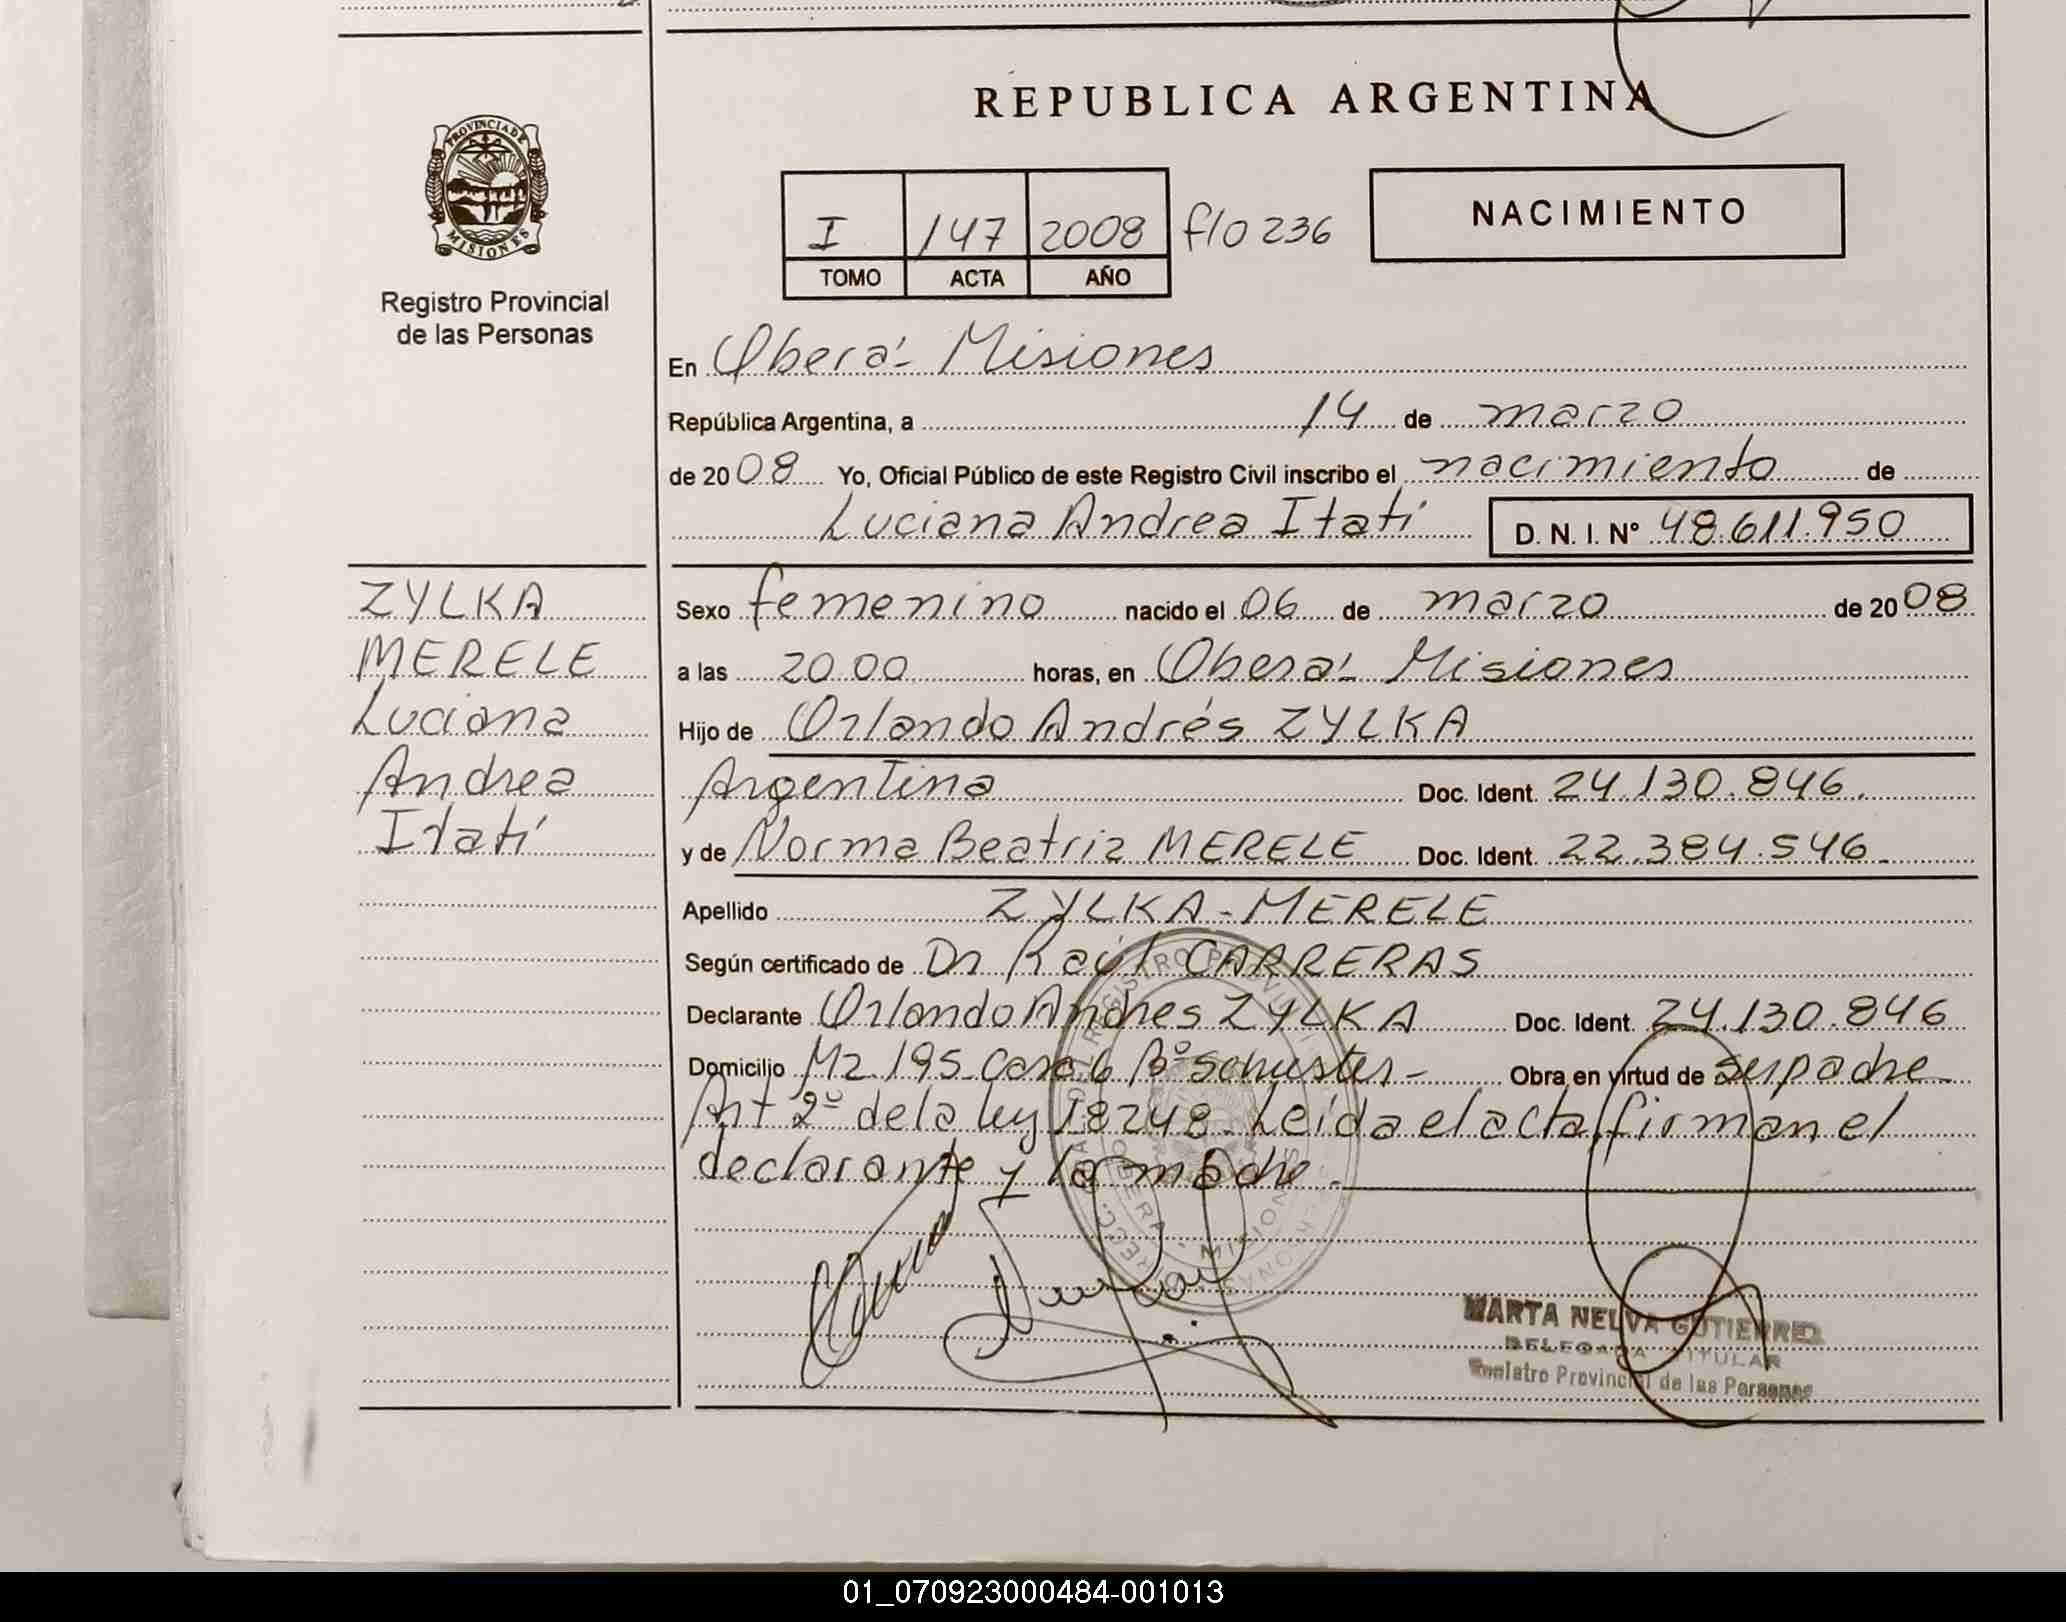 REPUBLICA ARGENTINA
PROVINCIA DE
MISIONES
Registro Provincial
de las Personas
I 147 2008 flo 236
TOMO ACTA AÑO
NACIMIENTO
En Oberá - Misiones
República Argentina, a 14 de marzo
de 2008 Yo, Oficial Público de este Registro Civil inscribo el nacimiento de
Luciana Andrea Itatí D. N. I. N° 48.611.950
ZYLKA
MERELE
Luciana
Andrea
Itatí
Sexo femenino nacido el 06 de marzo de 2008
a las 20.00 horas, en Oberá - Misiones
Hijo de Orlando Andrés ZYLKA
Argentina Doc. Ident. 24.130.846.
y de Norma Beatriz MERELE Doc. Ident. 22.384.546.
Apellido ZYLKA - MERELE
Según certificado de Dr Raúl CARRERAS
Declarante Orlando Andres ZYLKA Doc. Ident. 24.130.846
Domicilio Mz 195 Casa 6 Bº Schuster - Obra en virtud de ser padre
Art 2º de la ley 18248. Leída el acta, firman el
declarante y la madre.
MARTA NELVA GUTIERREZ
DELEGADA TITULAR
Registro Provincial de las Personas
01_070923000484-001013